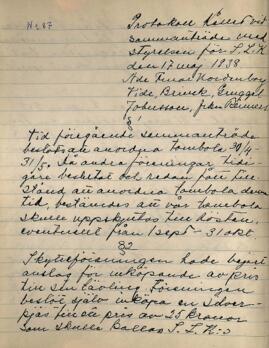 Nr 87
Protokoll hållet vid
sammanträde med
styrelsen för S.L.K
den 17 maj 1938
Nde Fruar Nordenborg
Tide, Brinck,
Johansson, frkn
§1
Vid föregående sammanträde
beslöts att anordna tombola 30/4-
31/5. Då andra föreningar tidi-
gare beslutat och redan fått till-
stånd att anordna tombola denna
tid, bestämdes att vår tombola
skulle uppskjutas till hösten,
eventuellt från 1 sept - 31 okt
§2
Skytteföreningen hade begärt
anslag för inköpande av pris
till sin tävling. Föreningen
beslöt själv inköpa en silver-
pjäs till ett pris av 25 kronor
som skulle kallas S.L.K:s